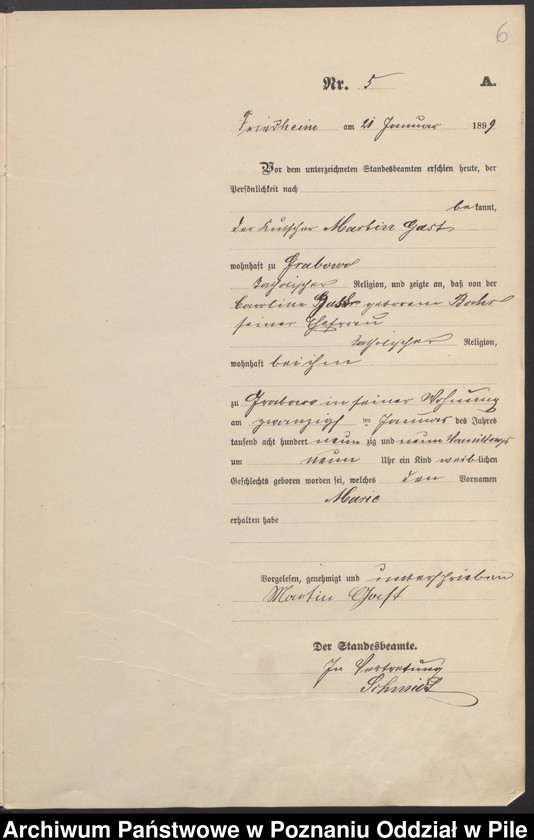 6
Nr. 5 A.
Friedheim am 21 Januar 1899
Vor dem unterzeichneten Standesbeamten erschien heute, der
Persönlichkeit nach
bekannt,
der Kutscher Martin Gast
wohnhaft zu Grabowo
katholischer Religion, und zeigte an, daß von der
Caroline Gast geborenen
seiner Ehefrau
katholischer Religion,
wohnhaft bei ihm
zu Grabowo in seiner Wohnung
am zwanzigsten Januar des Jahres
tausend acht hundert neunzig und neun Vormittags
um neun Uhr ein Kind weiblichen
Geschlechts geboren worden sei, welches den Vornamen
Marie
erhalten habe
Vorgelesen, genehmigt und unterschrieben
Martin Gast
Der Standesbeamte.
In Vertretung
Schmidt
Archiwum Państwowe w Poznaniu Oddział w Pile